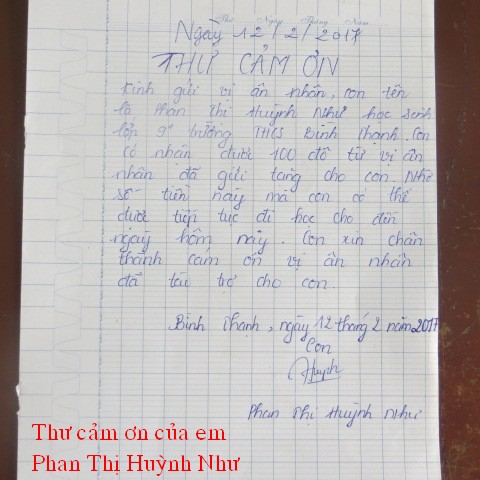 Thứ Ngày Tháng Năm
Ngày 12/2/2017
THƯ CẢM ƠN
Kính gửi vị ân nhân, con tên
là Phan Thị Huỳnh Như học sinh
lớp 9⁴ trường THCS Bình Thạnh. Con
có nhận được 100 đô từ vị ân
nhân đã gửi tặng cho con. Nhờ
số tiền này mà con có thể
được tiếp tục đi học cho đến
ngày hôm nay. Con xin chân
thành cảm ơn vị ân nhân
đã tài trợ cho con.
Bình Thạnh, ngày 12 tháng 2 năm 2017
Con
Huỳnh
Phan Thị Huỳnh Như
Thư cảm ơn của em
Phan Thị Huỳnh Như